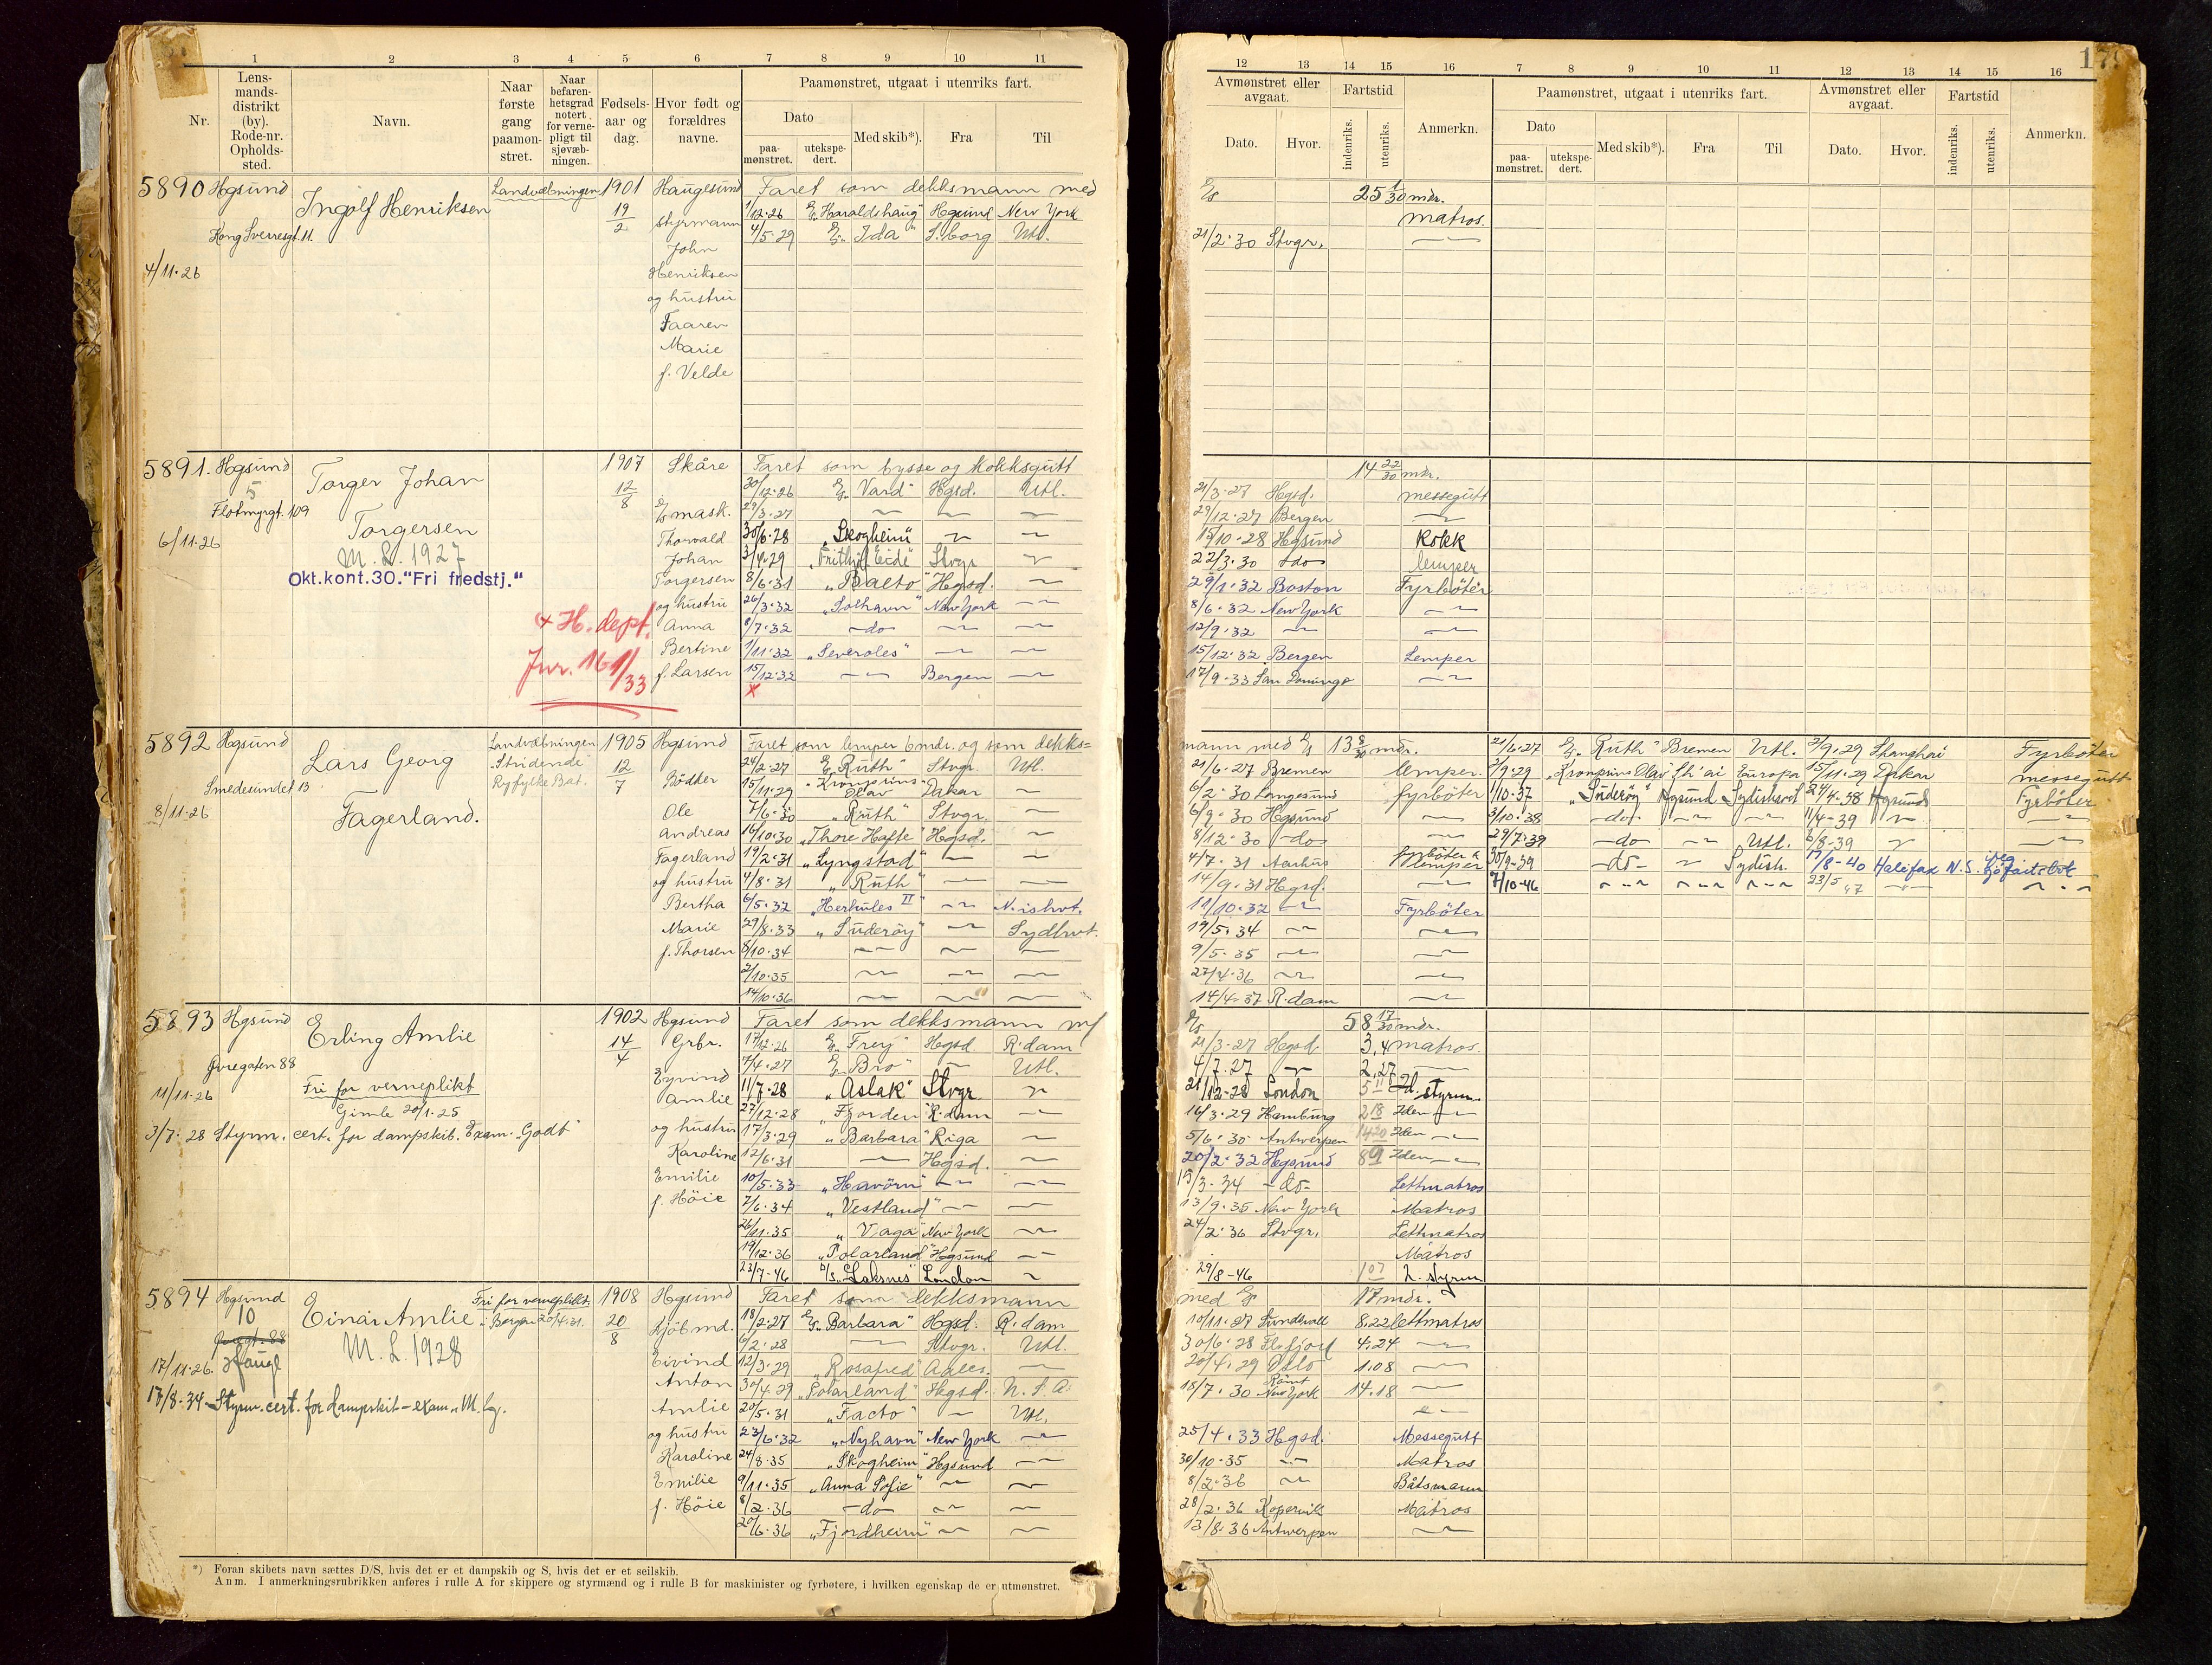 1 2 3 4 5 6 7 8 9 10 11
Nr.
Lens-
mands-
distrikt
(by).
Rode-nr.
Opholds-
sted.
Navn.
Naar
første
gang
paamøn-
stret.
Naar
befaren-
hetsgrad
notert
for verne-
pligt til
sjøvæb-
ningen.
Fødsels-
aar og
dag.
Hvor født og
forældres
navne.
Paamønstret, utgaat i utenriks fart.
Dato
paa-
mønstret.
utekspe-
dert.
Med skib*).
Fra
Til
5890 Hgsund Ingolf Henriksen Landvæbningen 1901 Haugesund Faret som dekksmann med
Kong Sverresgt. 11. 19/2 styrmann 1/12·26 D/S „Haraldshaug" Hgsund New York
4/11·26 John 4/5·29 D/S „Ida" S.borg Utl.
Henriksen
og hustru
Faaren
Marie
f. Velde
5891. Hgsund Torger Johan 1907 Skåre Faret som bysse og kokksgutt
5 12/8 30/12·26 D/S „Vard" Hgsd. Utl.
Flotmyrgt. 109 Torgersen D/S mask. 29/3·27 — — —
6/11·26 M. L. 1927 Thorvald 30/6·28 „Skogheim" — —
Okt.kont.30."Fri fredstj." Johan 3/4·29 „Frithjof Eide" Stvgr —
Torgersen 8/6·31 „Balto" Hgsd. —
og hustru 26/3·32 „Solhavn" New York —
+ H. dept. Anna 8/7·32 —do— — —
Bertine 1/11·32 „Severoles" — —
Jnr. 161/33 f. Larsen 15/12·32 — Bergen —
x
5892 Hgsund Lars Georg Landvæbningen 1905 Hgsund Faret som lemper 6 mdr. og som dekks=
Smedesundet 13 „Stridende" 12/7 Bödker 24/2·27 D/S „Ruth" Stvgr. Utl.
8/11·26 Fagerland. Ryfylke Bat. 15/11·29 „Kronprins Olav" Dakar —
Ole 7/6·30 „Ruth" Stvgr. —
Andreas 16/10·30 „Thore Hafte" Hgsd. —
Fagerland 19/2·31 „Lyngstad" — —
og hustru 4/8·31 „Ruth" — —
Bertha 6/5·32 „Herkules II" — N.ishvt.
Marie 29/8·33 „Suderøy" — Sydhvt.
f. Thorsen 8/10·34 — — —
2/10·35 — — —
14/10·36 — — —
5893 Hgsund Erling Amlie 1902 Hgsund Faret som dekksmann m/
Øvregaten 88 14/4 Grbr. 17/12·26 D/S „Frey" Hgsd R.dam
11/11·26 Fri for verneplikt Eyvind 7/4·27 D/S „Bro" — Utl.
Gimle 20/1·25 Amlie 11/7·28 „Aslak" Stvgr —
og hustru 27/12·28 „Fjorden" R.dam —
3/7·28 Styrm. cert. for dampskib. Exam. „Godt" 17/3·29 „Barbara" Riga —
Karoline 12/6·31 — Hgsd. —
Emilie 10/5·33 „Havörn" — —
f. Höie 7/6·34 „Vestland" — —
26/11·35 „Vaga" New York —
19/12·36 „Polarland" Hgsund —
23/7-46 D/S „Laksnes" London —
5894 Hgsund Einar Amlie Fri for verneplikt. 1908 Hgsund Faret som dekksmann
10 i Bergen 20/4·31. 20/8 kjöbmd. 18/2·27 D/S „Barbara" Hgsd. R.dam
Øvregt. 88 M. L. 1928 6/2·28 — Stvgr. Utl.
17/11·26. Haugl Eivind 12/3·29 „Rosafred" Aales. —
Anton 30/4·29 „Polarland" Hgsd. N. S. A.
17/8·34 Styrm. cert. for dampskib - exam. „M. Eg. Amlie 20/5·31 „Facto" — Utl.
og hustru 23/6·32 „Nyhavn" New York —
Karoline 24/8·35 „Skogheim" Hgsund —
Emilie 9/11·35 „Anna Sofie" — —
f. Höie 8/2·36 —do— — —
20/6·36 „Fjordheim" — —
*) Foran skibets navn sættes D/S, hvis det er et dampskib og S, hvis det er et seilskib.
Anm. I anmerkningsrubrikken anføres i rulle A for skippere og styrmænd og i rulle B for maskinister og fyrbøtere, i hvilken egenskap de er utmønstret.
12 13 14 15 16 7 8 9 10 11 12 13 14 15 16
Avmønstret eller
avgaat.
Dato.
Hvor.
Fartstid
indenriks.
utenriks.
Anmerkn.
Paamønstret, utgaat i utenriks fart.
Dato
paa-
mønstret.
utekspe-
dert.
Med skib*).
Fra
Til
Avmønstret eller
avgaat.
Dato.
Hvor.
Fartstid
indenriks.
utenriks.
Anmerkn.
D/S 25 1/30 mdr.
matros.
21/2·30 Stvgr. —
14 22/30 mdr.
21/3·27 Hgsd. messegutt
29/12·27 Bergen —
15/10·28 Hgsund Kokk
22/3·30 do lemper
29/1·32 Boston Fyrböter
8/6·32 New York —
12/9·32 — —
15/12·32 Bergen Lemper
17/9·33 San Domingo —
mann med D/S 13 8/30 mdr. 21/6·27 D/S „Ruth" Bremen Utl. 2/9·29 Shanghai Fyrböter
21/6·27 Bremen lemper. 2/9·29 „Kronprins Olav" Sh'ai Europa 15/11·29 Dakar messegutt
6/2·30 Langesund fyrböter 1/10·37 „Suderøy" Hgsund Sydishvt 24/4-38 Hgsund Fyrböter
6/9·30 Hgsund — 3/10·38 —do— — — 11/4-39 — —
8/12·30 do — 29/7·39 —do— — Utl. 6/8-39 — —
4/7·31 Aarhus fyrböter & lemper 30/9-39 —do— — Sydish. 17/8-40 Halifax N.S.
14/9·31 Hgsd. — 7/10-46 — — — 23/5 47 — —
11/10·32 — Fyrböter
19/5·34 — —
9/5·35 — —
27/4·36 — —
14/4·37 R.dam —
D/S 58 17/30 mdr.
21/3·27 Hgsd 3,4 matros.
4/7·27 — 2,27 —
21/12-28 London 5 11 2d. styrm.
16/3·29 Hamburg 2 18 2den —
5/6·30 Antwerpen 14 20 2den —
20/2·32 Hgsund 8 9 2den —
15/3·34 do Lettmatros
13/9·35 New York Matros
24/2·36 Stvgr. Lettmatros
Matros
29/8-46 1 07 2. styrm
med D/S 17 mdr.
10/11·27 Sundsvall 8.22 lettmatros
30/6·28 4.24 —
20/4·29 Oslo 1.08 —
18/7·30 Rømt New York 14.18 —
—
25/4·33 Hgsd. Messegutt
30/10·35 — Matros
8/2·36 — Båtsmann
28/2·36 Kopervik Matros
13/8·36 Antwerpen —